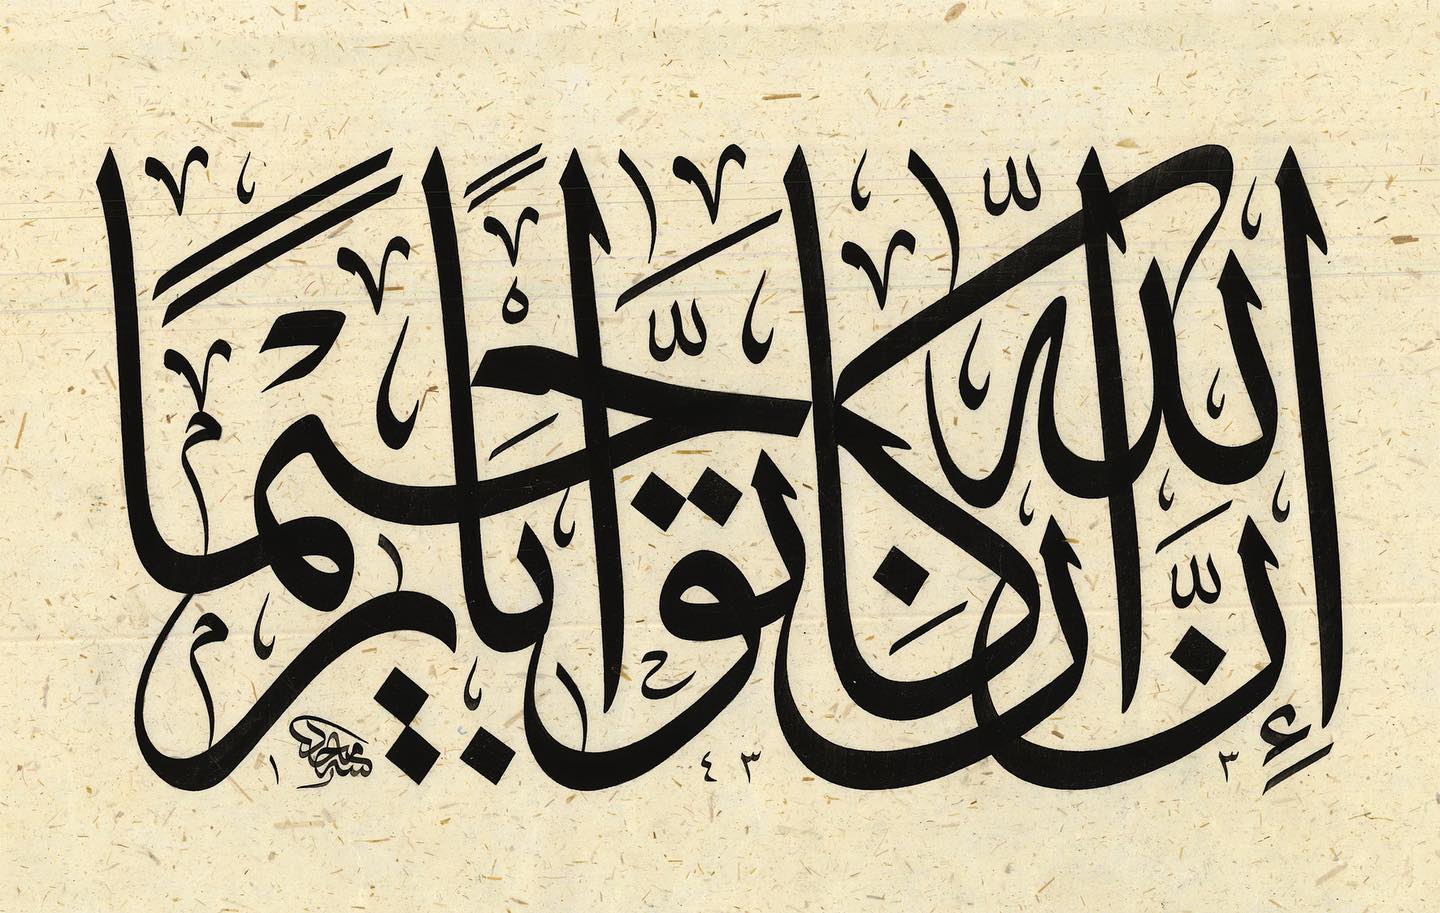 إِنَّ اللَّهَ كَانَ تَوَّابًا رَحِيمًا